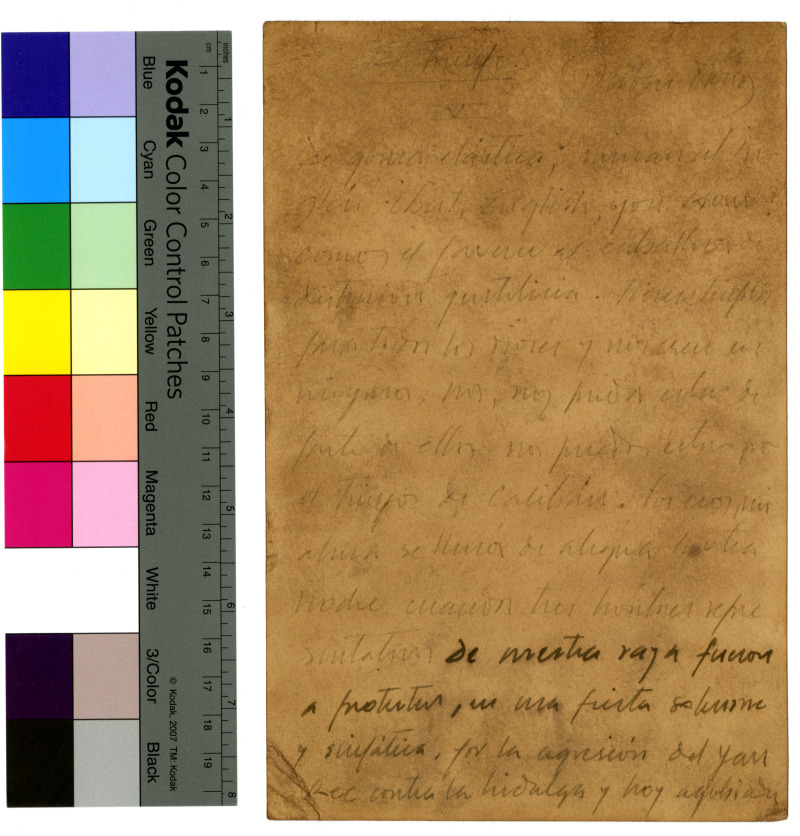 Kodak Color Control Patches
Blue
Cyan
Green
Yellow
Red
Magenta
White
3/Color
Black
© Kodak, 2007 TM: Kodak
cm
1 2 3 4 5 6 7 8 9 10 11 12 13 14 15 16 17 18 19
inches
1 2 3 4 5 6 7 8
El Triunfo
de goma elástica; miman al in-
glés English, you know?
como el parvenu al caballero de
distinción gentilicia. Tienen templos
para todos los dioses y no creen en
ninguno. No, no puedo estar de
parte de ellos no puedo estar por
el triunfo de Calibán. Por eso, mi
alma se llenó de alegría la otra
noche cuando tres hombres repre
sentativos de nuestra raza fueron
a protestar, en una fiesta solemne
y simpática, por la agresión del yan
kee contra la hidalga y hoy agobiada